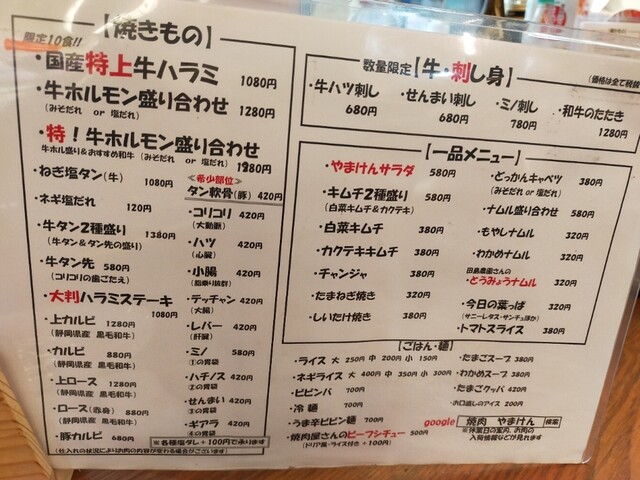 【焼きもの】
限定10食!!
・国産特上牛ハラミ 1080円
・牛ホルモン盛り合わせ 1280円
(みそだれ or 塩だれ)
・特!牛ホルモン盛り合わせ
牛ホル盛り&おすすめ和牛 (みそだれ or 塩だれ) 1980円
・ねぎ塩タン(牛) 1080円
・ネギ塩だれ 120円
・牛タン2種盛り 1380円
(牛タン&タン先の盛り)
・牛タン先 580円
(コリコリの歯ごたえ)
・大判ハラミステーキ
1080円
・上カルビ 1280円
(静岡県産 黒毛和牛)
・カルビ 880円
(静岡県産 黒毛和牛)
・上ロース 1280円
(静岡県産 黒毛和牛)
・ロース(赤身) 880円
(静岡県産 黒毛和牛)
・豚カルビ 680円
≪希少部位≫
タン軟骨(豚) 420円
・コリコリ 420円
(大動脈)
・ハツ 420円
(心臓)
・小腸 420円
(脂乗り抜群)
・テッチャン 420円
(大腸)
・レバー 420円
(肝臓)
・ミノ 580円
①の胃袋
・ハチノス 420円
②の胃袋
・せんまい 420円
③の胃袋
・ギアラ 420円
④の胃袋
※各種塩ダレ+100円で承ります
(仕入れの状況によりお肉の内容が変わる場合がございます)
数量限定【牛・刺し身】
(価格は全て税抜
・牛ハツ刺し 680円
・せんまい刺し 680円
・ミノ刺し 780円
・和牛のたたき 1280円
【一品メニュー】
・やまけんサラダ 580円
・キムチ2種盛り 580円
(白菜キムチ&カクテキ)
・白菜キムチ 380円
・カクテキキムチ 380円
・チャンジャ 380円
・たまねぎ焼き 320円
・しいたけ焼き 380円
・とっかんキャベツ 380円
(みそだれ or 塩だれ)
・ナムル盛り合わせ 580円
・もやしナムル 320円
・わかめナムル 320円
田島農園さんの
・とうみょうナムル 320円
・今日の葉っぱ 320円
(サニーレタス・サンチュほか)
・トマトスライス 380円
【ごはん・麺】
・ライス 大 250円 中 200円 小 150円
・ネギライス 大 400円 中 350円 小 300円
・ビビンバ 700円
・冷麺 700円
・うま辛ビビン麺 700円
・焼肉屋さんのビーフシチュー 500円
(ドリア風・ライス付き +100円)
・たまごスープ 380円
・わかめスープ 380円
・たまごクッパ 420円
・お口直しのアイス 200円
google 焼肉 やまけん 検索
※休業日の案内、お肉の
入荷情報などが見れます